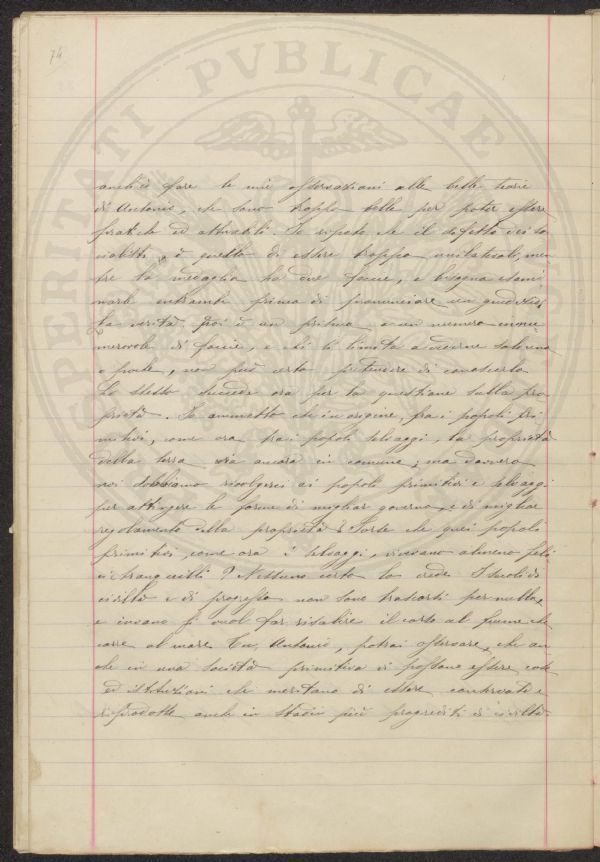 74
PROSPERITATI PVBLICAE
anch'io fare le mie osservazioni alle belle teorie
di Antonio, che sono troppo belle per poter essere
pratiche ed attuabili. Io ripeto che il difetto dei so
cialisti, è quello di essere troppo unilaterali, men
tre la medaglia ha due faccie, e bisogna esami
narle entrambe prima di pronunciare un giudizio.
La verità poi è un prisma a un numero innu
merevole di faccie, e chi si limita a vederne solo una
o poche, non può certo pretendere di conoscerla.
Lo stesso succede ora per la questione sulla pro
prietà. Io ammetto che in origine, fra i popoli pri
mitivi, come ora tra i popoli selvaggi, la proprietà
della terra sia ancora in comune; ma davvero
noi dobbiamo rivolgerci ai popoli primitivi e selvaggi
per attingere le forme di miglior governo, e di miglior
regolamento della proprietà? Forse che quei popoli
primitivi, come ora i selvaggi, vivevano almeno feli
ci tranquilli? Nessuno certo lo crede. I secoli di
civiltà e di progresso non sono trascorsi per nulla,
e invano si vuol far risalire il corso al fiume che
corre al mare. Tu, Antonio, potrai osservare, che an
che in una società primitiva vi possono essere cose
ed istituzioni che meritano di essere conservate e
riprodotte anche in stadii più progrediti di civiltà.